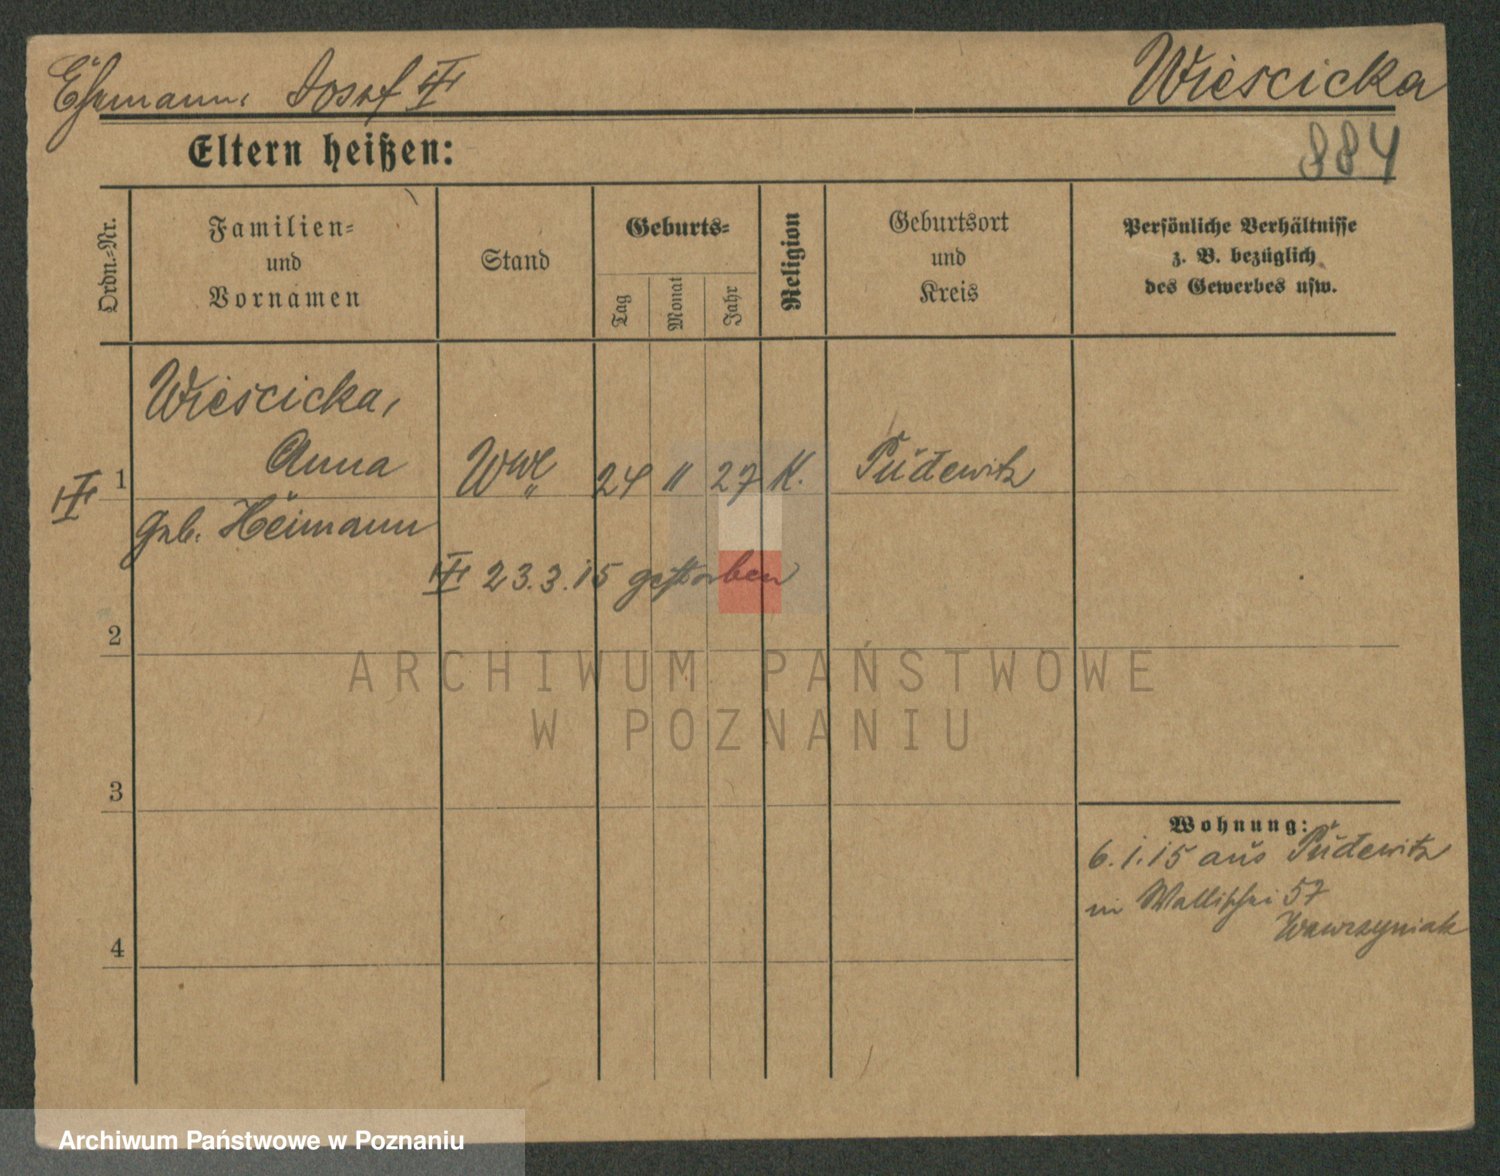 Ehemann: Josef
Wiescicka
884
Eltern heißen:
Ordn.-Nr.
Familien-
und
Vornamen
Stand
Geburts-
Tag
Monat
Jahr
Religion
Geburtsort
und
Kreis
Persönliche Verhältnisse
z. B. bezüglich
des Gewerbes usw.
Wiescicka,
Anna
1 Wwe 24 11 27 K. Pudewitz
geb. Heimann
23.3.15 gestorben
2
ARCHIWUM PAŃSTWOWE
W POZNANIU
3
Wohnung:
6.1.15 aus Pudewitz
in Wallischei 57
Wawrzyniak
4
Archiwum Państwowe w Poznaniu